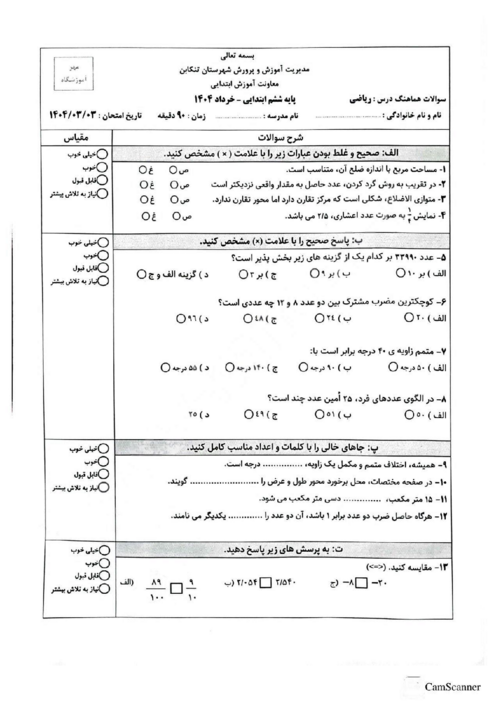 بسمه تعالی
مدیریت آموزش و پرورش شهرستان تنکابن
معاونت آموزش ابتدایی
مهر آموزشگاه
سوالات هماهنگ درس : ریاضی پایه ششم ابتدایی - خرداد ۱۴۰۴
نام و نام خانوادگی : .................... نام مدرسه : .................... زمان : ۹۰ دقیقه تاریخ امتحان : ۱۴۰۴/۰۳/۰۳
شرح سوالات مقیاس
الف: صحیح و غلط بودن عبارات زیر را با علامت ( × ) مشخص کنید.
۱- مساحت مربع با اندازه ضلع آن، متناسب است. ص غ
۲- در تقریب به روش گرد کردن، عدد حاصل به مقدار واقعی نزدیکتر است ص غ
۳- متوازی الاضلاع، شکلی است که مرکز تقارن دارد اما محور تقارن ندارد. ص غ
۴- نمایش ۱/۲ به صورت عدد اعشاری، ۲/۵ می باشد. ص غ
خیلی خوب
خوب
قابل قبول
نیاز به تلاش بیشتر
ب: پاسخ صحیح را با علامت (×) مشخص کنید.
۵- عدد ۳۳۹۹۰ بر کدام یک از گزینه های زیر بخش پذیر است؟
الف ) بر ۱۰ ب ) بر ۹ ج ) بر ۳ د ) گزینه الف و ج
۶- کوچکترین مضرب مشترک بین دو عدد ۸ و ۱۲ چه عددی است؟
الف ) ۲۰ ب ) ۲۴ ج ) ۴۸ د ) ۹۶
۷- متمم زاویه ی ۴۰ درجه برابر است با:
الف ) ۵۰ درجه ب ) ۹۰ درجه ج ) ۱۴۰ درجه د ) ۵۵ درجه
۸- در الگوی عددهای فرد، ۲۵ اُمین عدد چند است؟
الف ) ۵۰ ب ) ۵۱ ج ) ۴۹ د ) ۲۵
خیلی خوب
خوب
قابل قبول
نیاز به تلاش بیشتر
پ: جاهای خالی را با کلمات و اعداد مناسب کامل کنید.
۹- همیشه، اختلاف متمم و مکمل یک زاویه، .............. درجه است.
۱۰- در صفحه مختصات، محل برخورد محور طول و عرض را ........................ گویند.
۱۱- ۱۵ متر مکعب، .............. دسی متر مکعب می شود.
۱۲- هرگاه حاصل ضرب دو عدد برابر ۱ باشد، آن دو عدد را ............. یکدیگر می نامند.
خیلی خوب
خوب
قابل قبول
نیاز به تلاش بیشتر
ت: به پرسش های زیر پاسخ دهید.
۱۳- مقایسه کنید. (<=>)
الف) ۸۹/۱۰۰ □ ۹/۱۰ ب) ۲/۰۵۴ □ ۲/۵۴۰ ج) ۸- □ ۲۰-
خیلی خوب
خوب
قابل قبول
نیاز به تلاش بیشتر
CamScanner